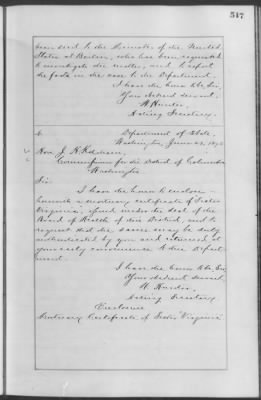 547
been sent to the Minister of the United
States at Berlin, who has been requested
to investigate the matter, and to report
the facts in the case to the Department.
I have the honor to be, Sir,
Your obedient servant,
W. Hunter,
Acting Secretary.
Department of State,
Washington, June
Hon. J. H.
Commissioner for the District of Columbia
Washington
Sir:
I have the honor to enclose
herewith a mortuary certificate of Sister
Virginia, issued under the seal of the
Board of Health of the District, and to
request that the same may be duly
authenticated by you and returned at
your early convenience to the Depart-
ment.
I have the honor to be, Sir,
Your obedient servant,
W. Hunter,
Acting Secretary.
Enclosure
Mortuary Certificate of Sister Virginia